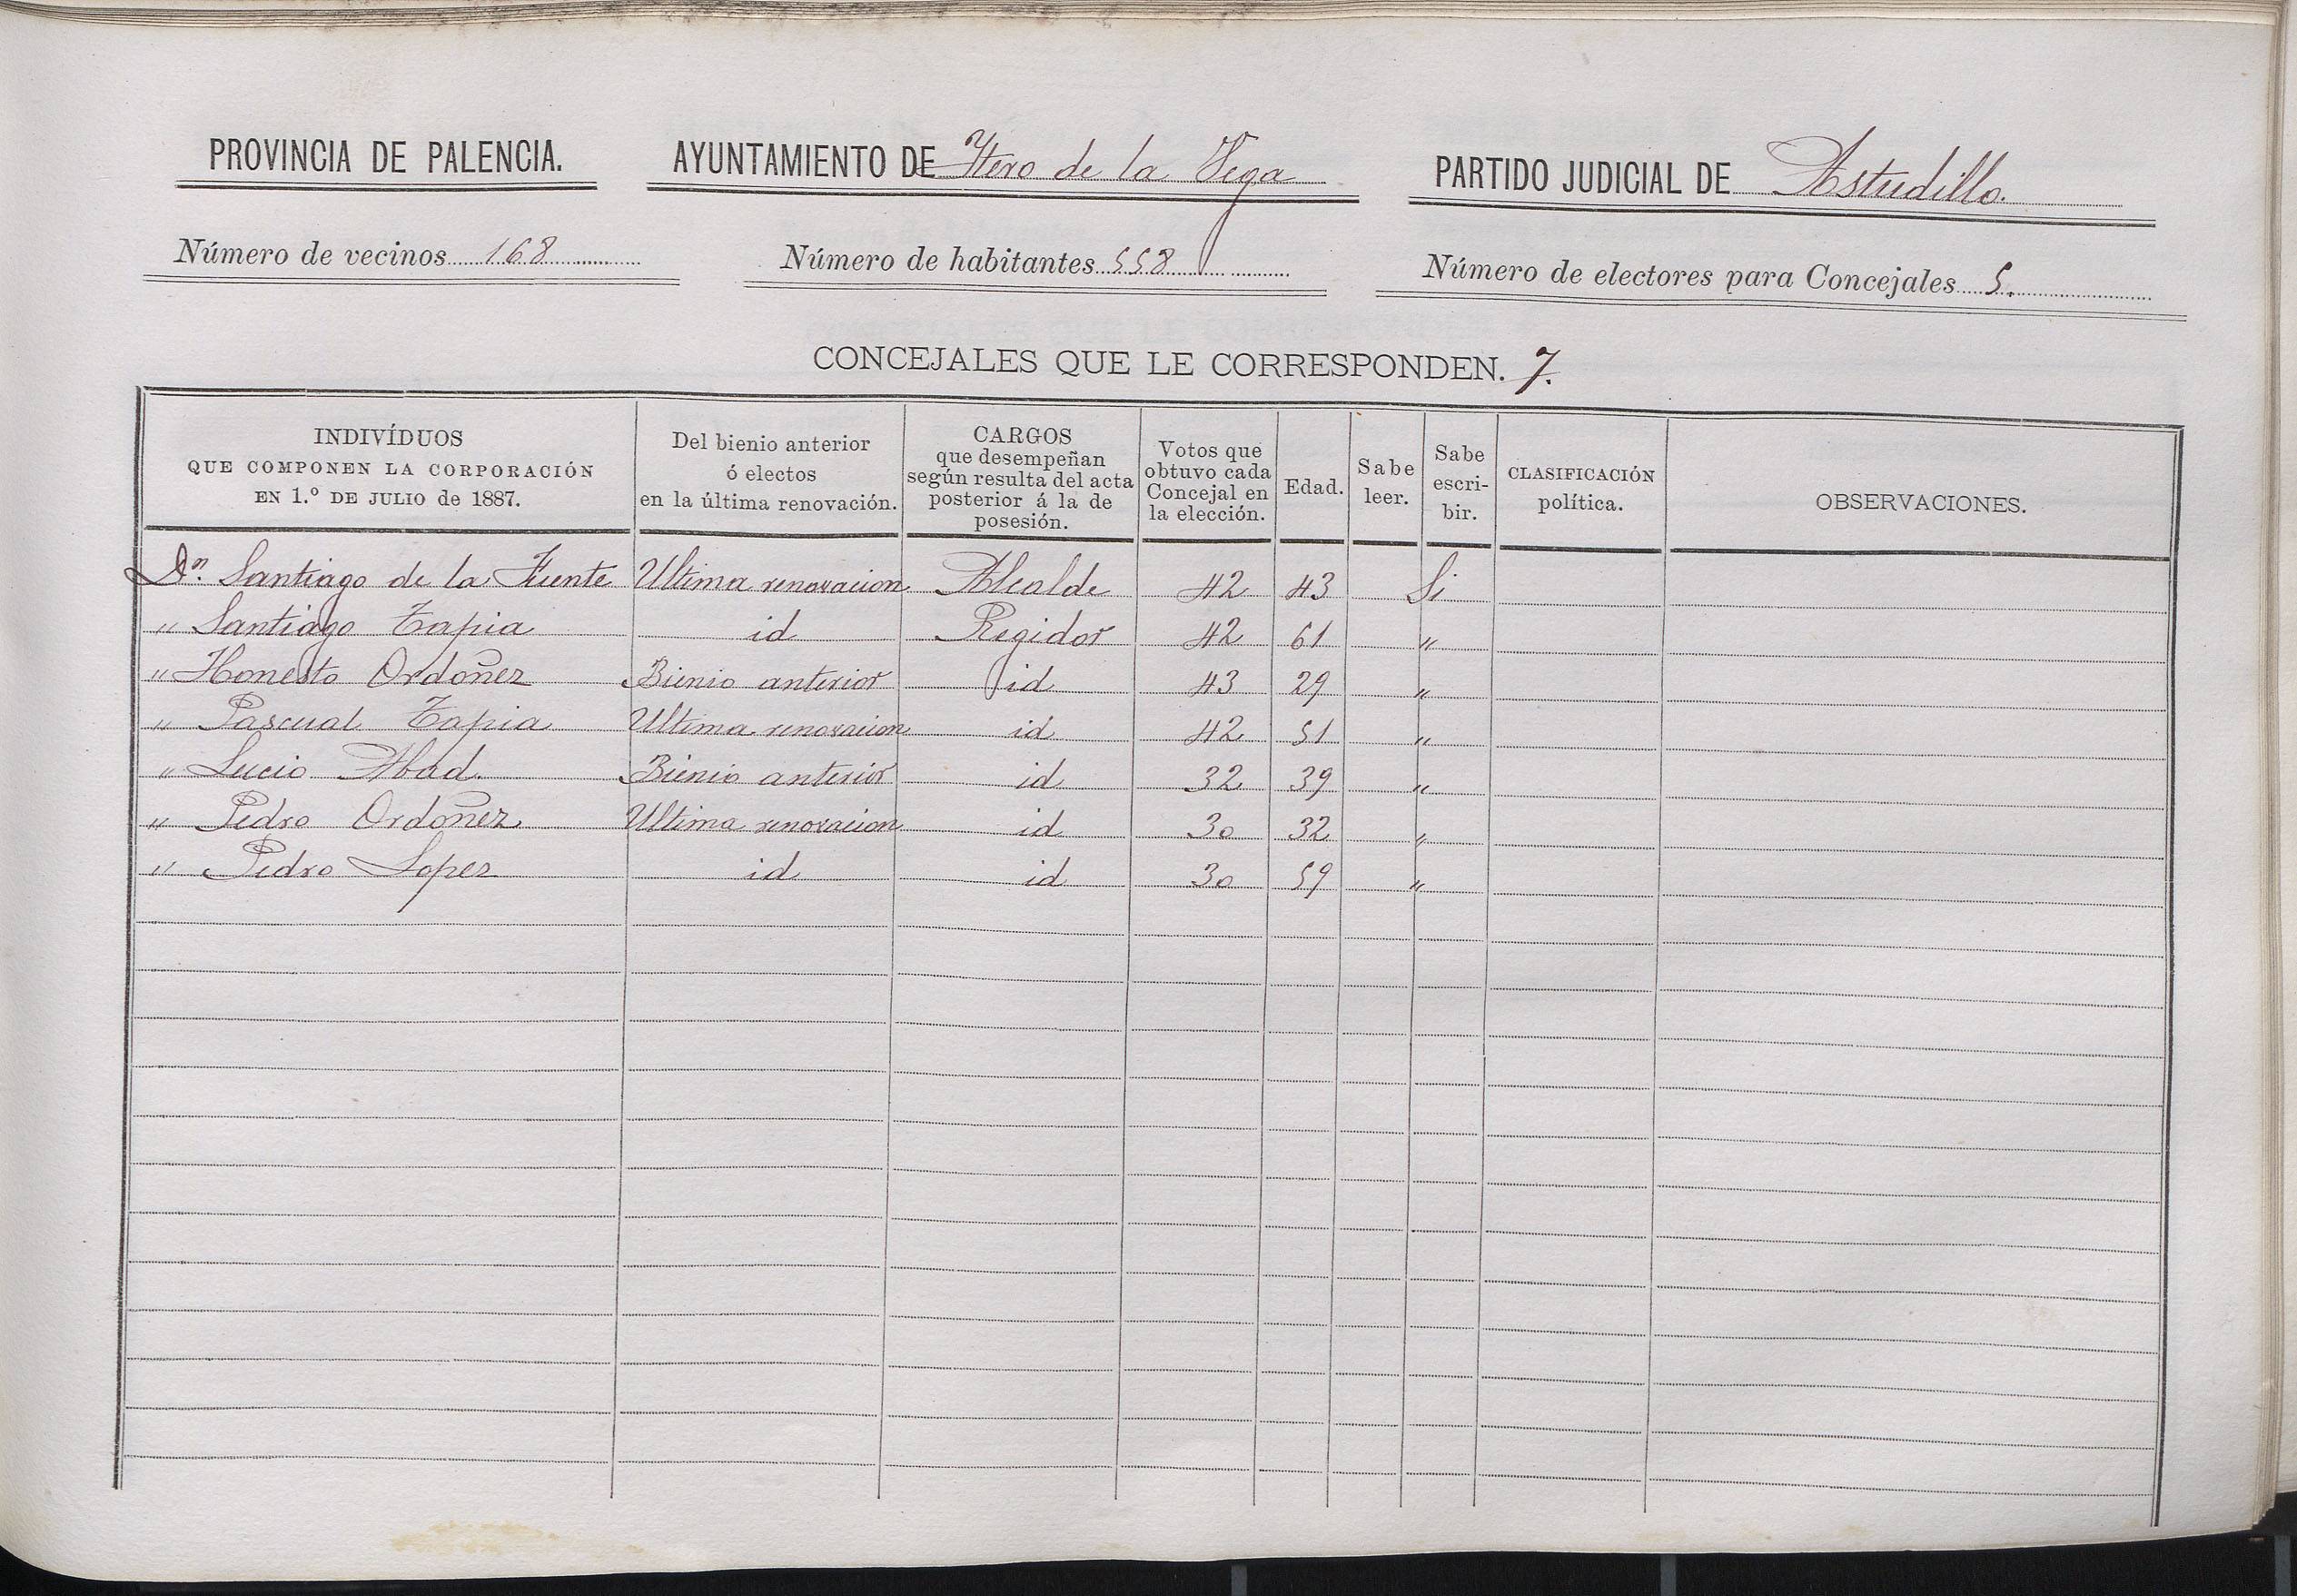 PROVINCIA DE PALENCIA. AYUNTAMIENTO DE Ytero de la Vega PARTIDO JUDICIAL DE Astudillo.
Número de vecinos 168 Número de habitantes 558 Número de electores para Concejales 5.
CONCEJALES QUE LE CORRESPONDEN. 7.
INDIVÍDUOS
QUE COMPONEN LA CORPORACIÓN
EN 1.º DE JULIO de 1887.
Del bienio anterior
ó electos
en la última renovación.
CARGOS
que desempeñan
según resulta del acta
posterior á la de
posesión.
Votos que
obtuvo cada
Concejal en
la elección.
Edad.
Sabe
leer.
Sabe
escri-
bir.
CLASIFICACIÓN
política.
OBSERVACIONES.
Dn. Santiago de la Fuente Ultima renovacion Alcalde 42 43 Si
" Santiago Tapia id Regidor 42 61 "
" Honesto Ordoñez Bienio anterior id 43 29 "
" Pascual Tapia Ultima renovacion id 42 51 "
" Lucio Abad. Bienio anterior id 32 39 "
" Pedro Ordoñez Ultima renovacion id 30 32 "
" Pedro Lopez id id 30 59 "